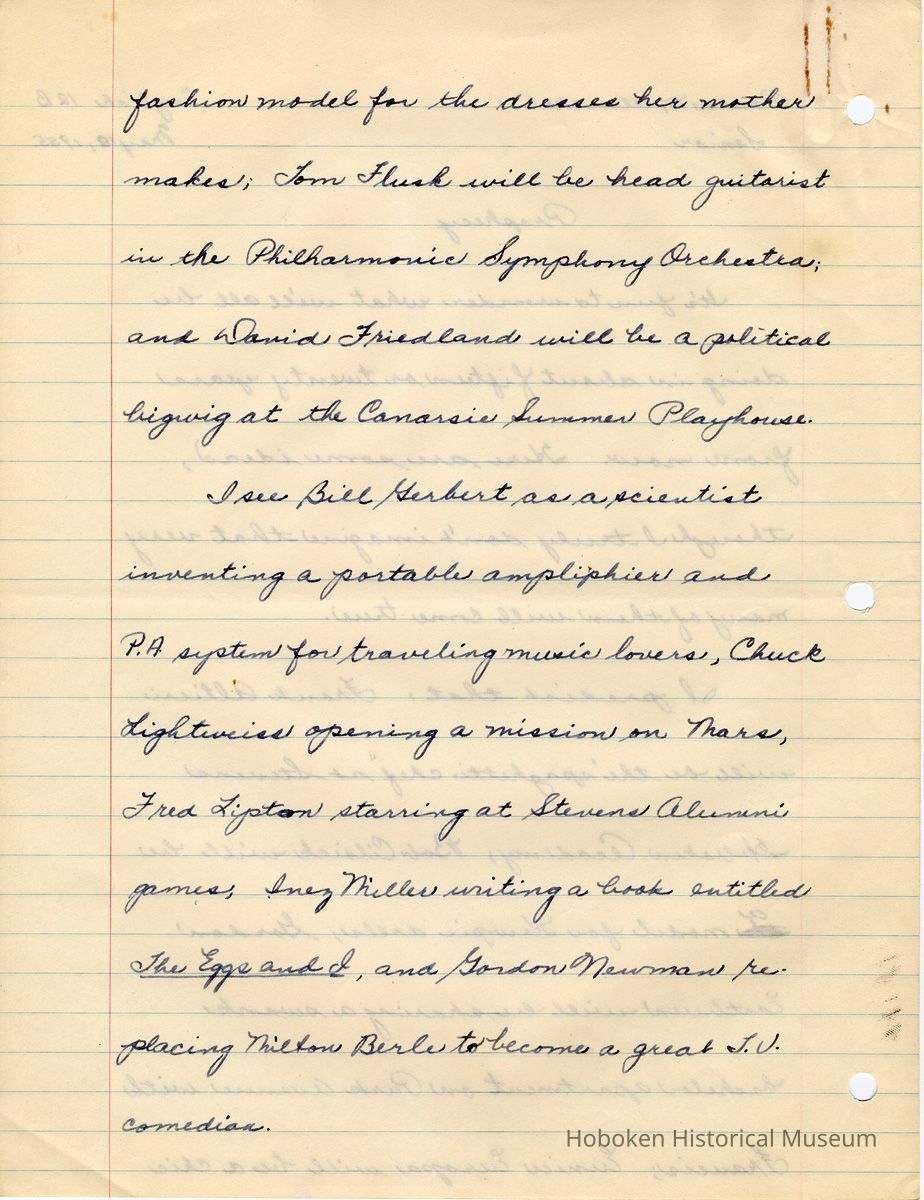 fashion model for the dresses her mother
makes; Tom Flusk will be head guitarist
in the Philharmonic Symphony Orchestra;
and David Friedland will be a political
bigwig at the Canarsie Summer Playhouse.
I see Bill Gerbert as a scientist
inventing a portable ampliphier and
P.A system for traveling music lovers, Chuck
Lightweiss opening a mission on Mars,
Fred Lipton starring at Stevens Alumni
games, Inez Miller writing a book entitled
The Eggs and I, and Gordon Newman re-
placing Milton Berle to become a great T.V.
comedian.
Hoboken Historical Museum